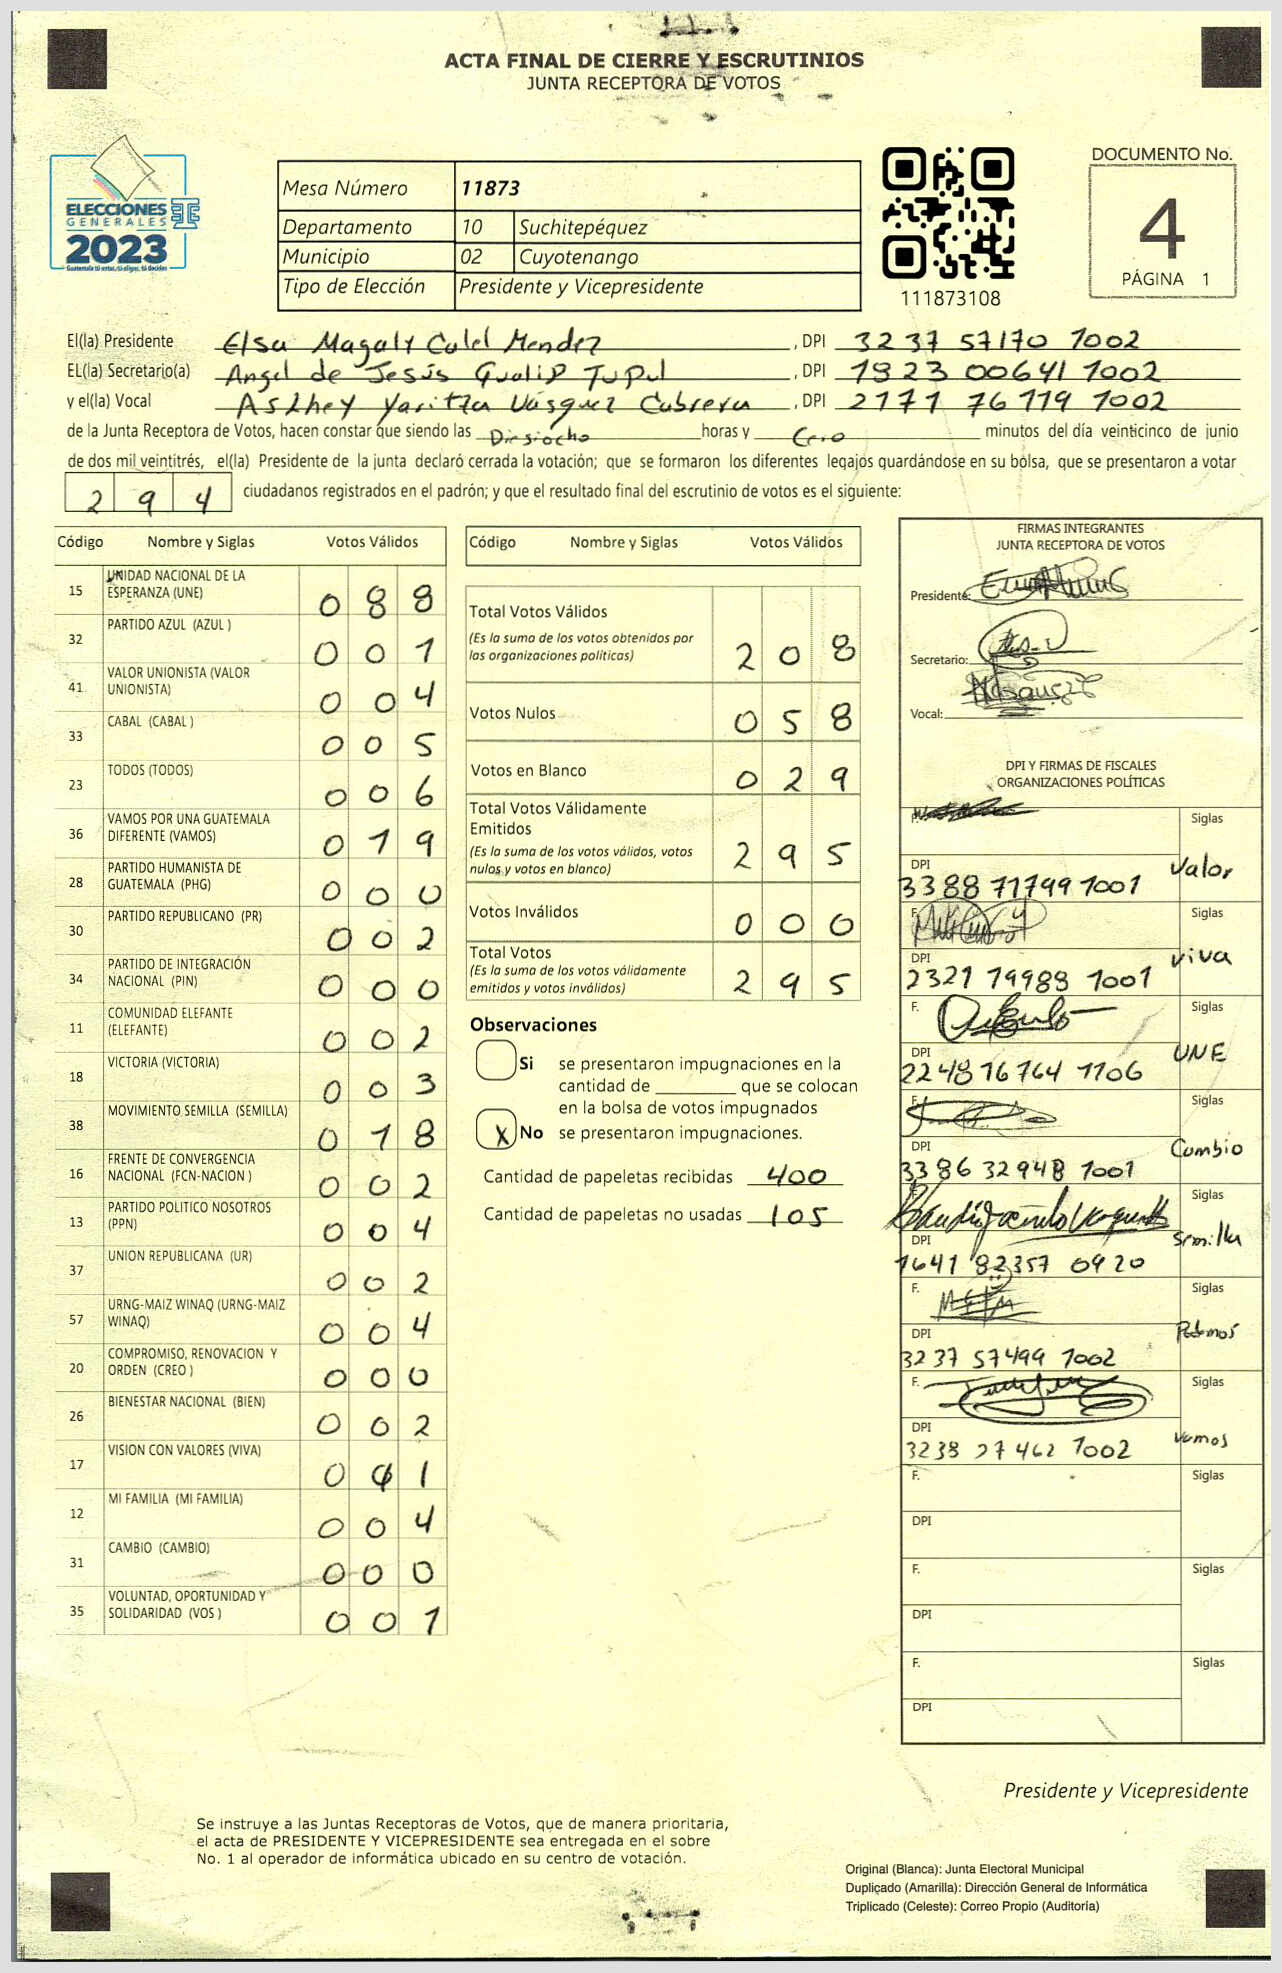 ACTA FINAL DE CIERRE Y ESCRUTINIOS
JUNTA RECEPTORA DE VOTOS
ELECCIONES
GENERALES
2023
Guatemala tú votas, tú eliges, tú decides
Mesa Número 11873
Departamento 10 Suchitepéquez
Municipio 02 Cuyotenango
Tipo de Elección Presidente y Vicepresidente
111873108
DOCUMENTO No.
4
PÁGINA 1
El(la) Presidente Elsa Magaly Culel Mendez , DPI 3237 57170 1002
EL(la) Secretario(a) Angel de Jesús Gualip Tupul , DPI 1923 00641 1002
y el(la) Vocal Aslhey Yaritza Vásquez Cabrera , DPI 2171 76119 1002
de la Junta Receptora de Votos, hacen constar que siendo las Diesiocho horas y Cero minutos del día veinticinco de junio
de dos mil veintitrés, el(la) Presidente de la junta declaró cerrada la votación; que se formaron los diferentes legajos guardándose en su bolsa, que se presentaron a votar
294 ciudadanos registrados en el padrón; y que el resultado final del escrutinio de votos es el siguiente:
Código Nombre y Siglas Votos Válidos
15 UNIDAD NACIONAL DE LA ESPERANZA (UNE) 088
32 PARTIDO AZUL (AZUL ) 001
41 VALOR UNIONISTA (VALOR UNIONISTA) 004
33 CABAL (CABAL ) 005
23 TODOS (TODOS) 006
36 VAMOS POR UNA GUATEMALA DIFERENTE (VAMOS) 019
28 PARTIDO HUMANISTA DE GUATEMALA (PHG) 000
30 PARTIDO REPUBLICANO (PR) 002
34 PARTIDO DE INTEGRACIÓN NACIONAL (PIN) 000
11 COMUNIDAD ELEFANTE (ELEFANTE) 002
18 VICTORIA (VICTORIA) 003
38 MOVIMIENTO SEMILLA (SEMILLA) 018
16 FRENTE DE CONVERGENCIA NACIONAL (FCN-NACION ) 002
13 PARTIDO POLITICO NOSOTROS (PPN) 004
37 UNION REPUBLICANA (UR) 002
57 URNG-MAIZ WINAQ (URNG-MAIZ WINAQ) 004
20 COMPROMISO, RENOVACION Y ORDEN (CREO ) 000
26 BIENESTAR NACIONAL (BIEN) 002
17 VISION CON VALORES (VIVA) 041
12 MI FAMILIA (MI FAMILIA) 004
31 CAMBIO (CAMBIO) 000
35 VOLUNTAD, OPORTUNIDAD Y SOLIDARIDAD (VOS ) 001
Código Nombre y Siglas Votos Válidos
Total Votos Válidos 208
(Es la suma de los votos obtenidos por
las organizaciones políticas)
Votos Nulos 058
Votos en Blanco 029
Total Votos Válidamente
Emitidos 295
(Es la suma de los votos válidos, votos
nulos y votos en blanco)
Votos Inválidos 000
Total Votos 295
(Es la suma de los votos válidamente
emitidos y votos inválidos)
Observaciones
Si se presentaron impugnaciones en la
cantidad de ________ que se colocan
en la bolsa de votos impugnados
X No se presentaron impugnaciones.
Cantidad de papeletas recibidas 400
Cantidad de papeletas no usadas 105
FIRMAS INTEGRANTES
JUNTA RECEPTORA DE VOTOS
Presidente:
Secretario:
Vocal:
DPI Y FIRMAS DE FISCALES
ORGANIZACIONES POLÍTICAS
F. Siglas
DPI Valor
3388 71799 1001
F. Siglas
DPI viva
2321 79989 1001
F. Siglas
DPI UNE
2248 16764 1106
F. Siglas
DPI Cambio
3386 32948 1001
Siglas
DPI Semilla
1641 82357 0920
F. Siglas
DPI Podemos
3237 57499 1002
F. Siglas
DPI vamos
3238 27462 1002
F. Siglas
DPI
F. Siglas
DPI
F. Siglas
DPI
Presidente y Vicepresidente
Se instruye a las Juntas Receptoras de Votos, que de manera prioritaria,
el acta de PRESIDENTE Y VICEPRESIDENTE sea entregada en el sobre
No. 1 al operador de informática ubicado en su centro de votación.
Original (Blanca): Junta Electoral Municipal
Duplicado (Amarilla): Dirección General de Informática
Triplicado (Celeste): Correo Propio (Auditoría)